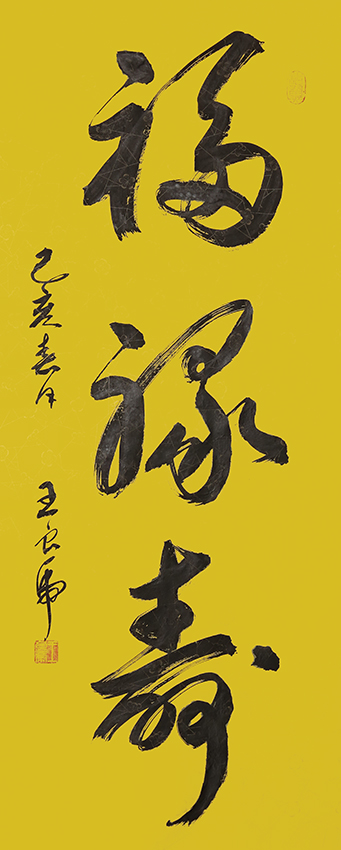 福禄寿
己亥春月 王良虎